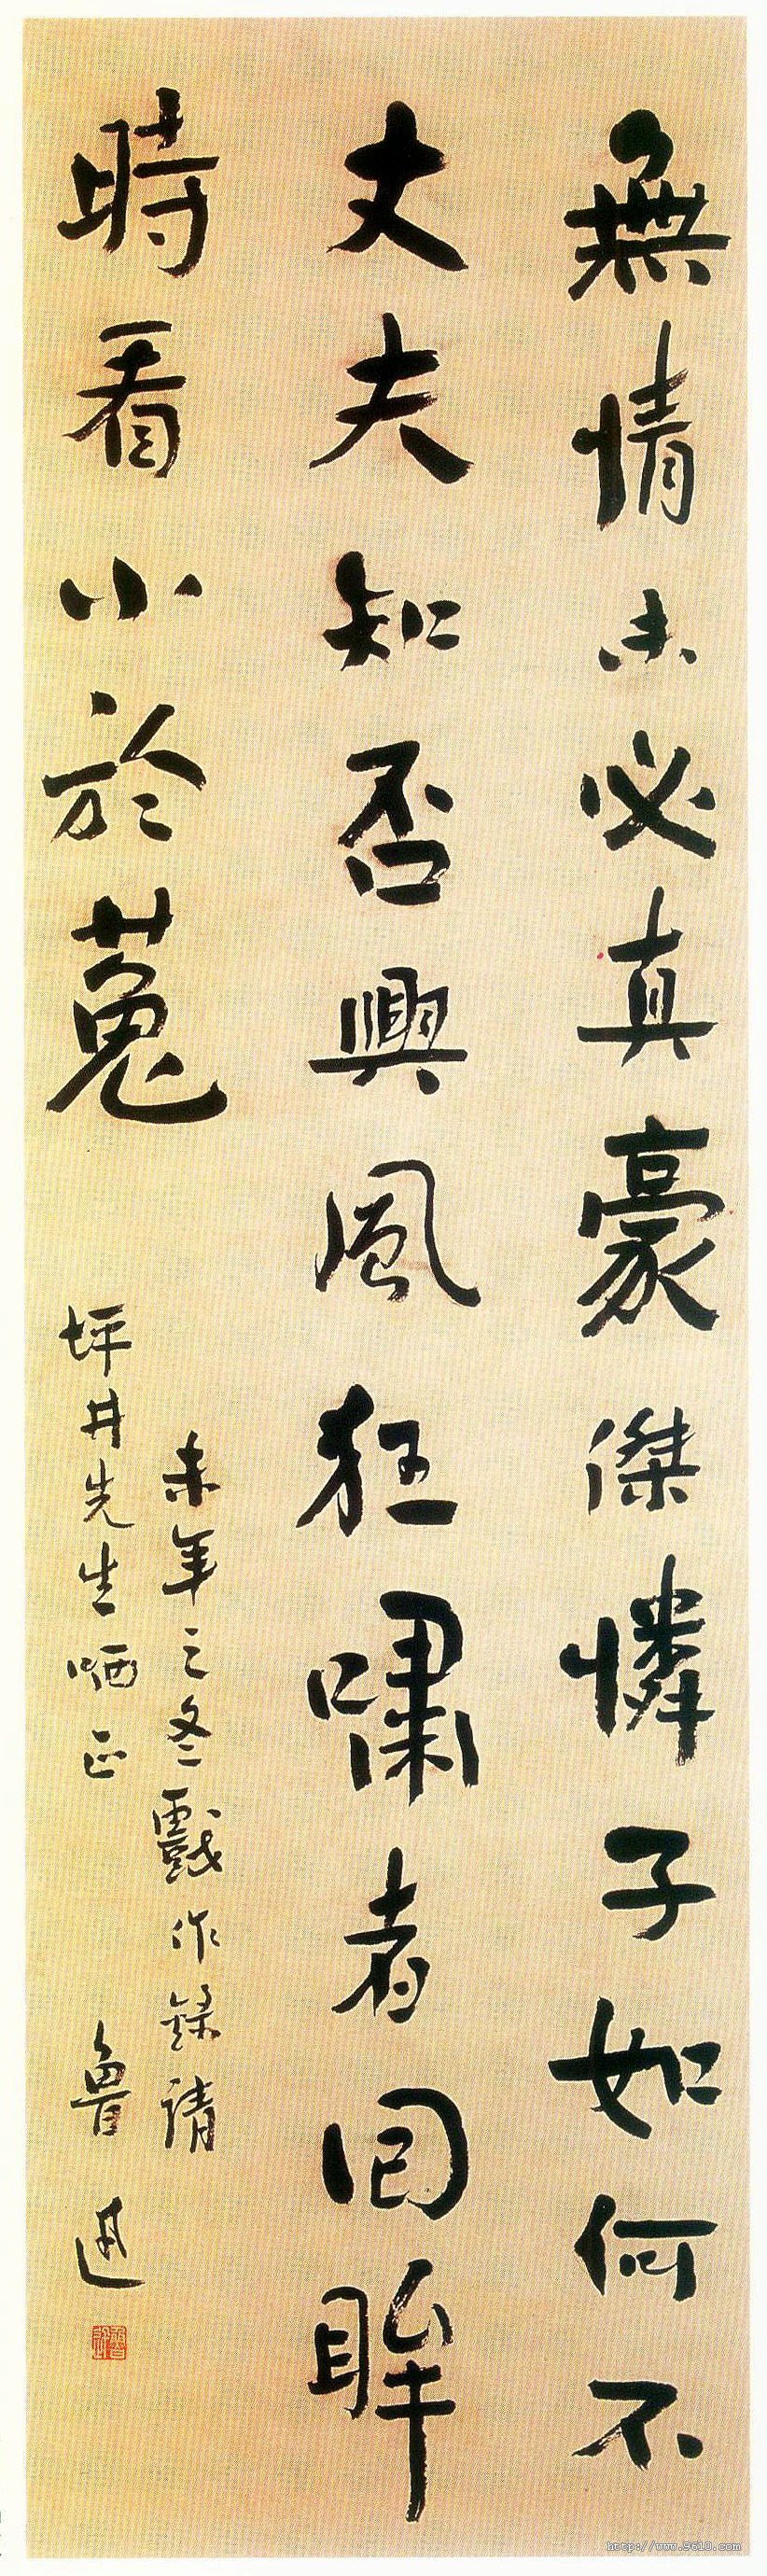 無情未必真豪傑憐子如何不
丈夫知否興風狂嘯者回眸
時看小於菟
未年之冬戲作錄請
坪井先生哂正
魯迅
http://www.9610.com